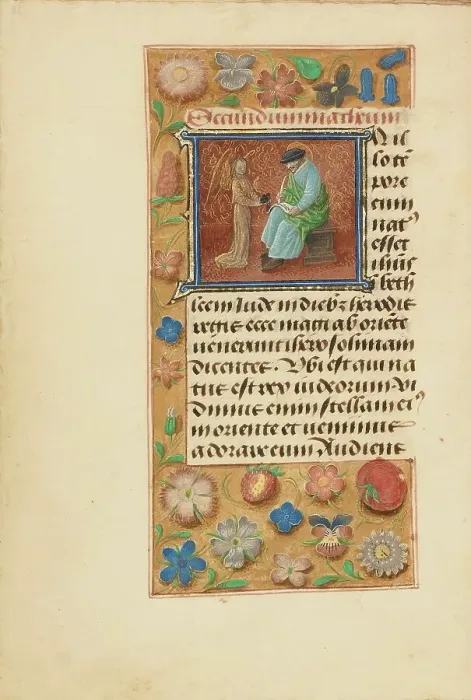 Secundum matheum
N il
lo tē
pore
cum
natꝰ
esset
ihūs
ī beth
leem Iude in diebꝫ herodis
regis ecce magi ab oriēte
uenerunt iherosolimam
dicentes. Vbi est qui na
tus est rex iudeorum vi
dimus enim stellam eiꝰ
in oriente et uenimus
adorare eum Audiens